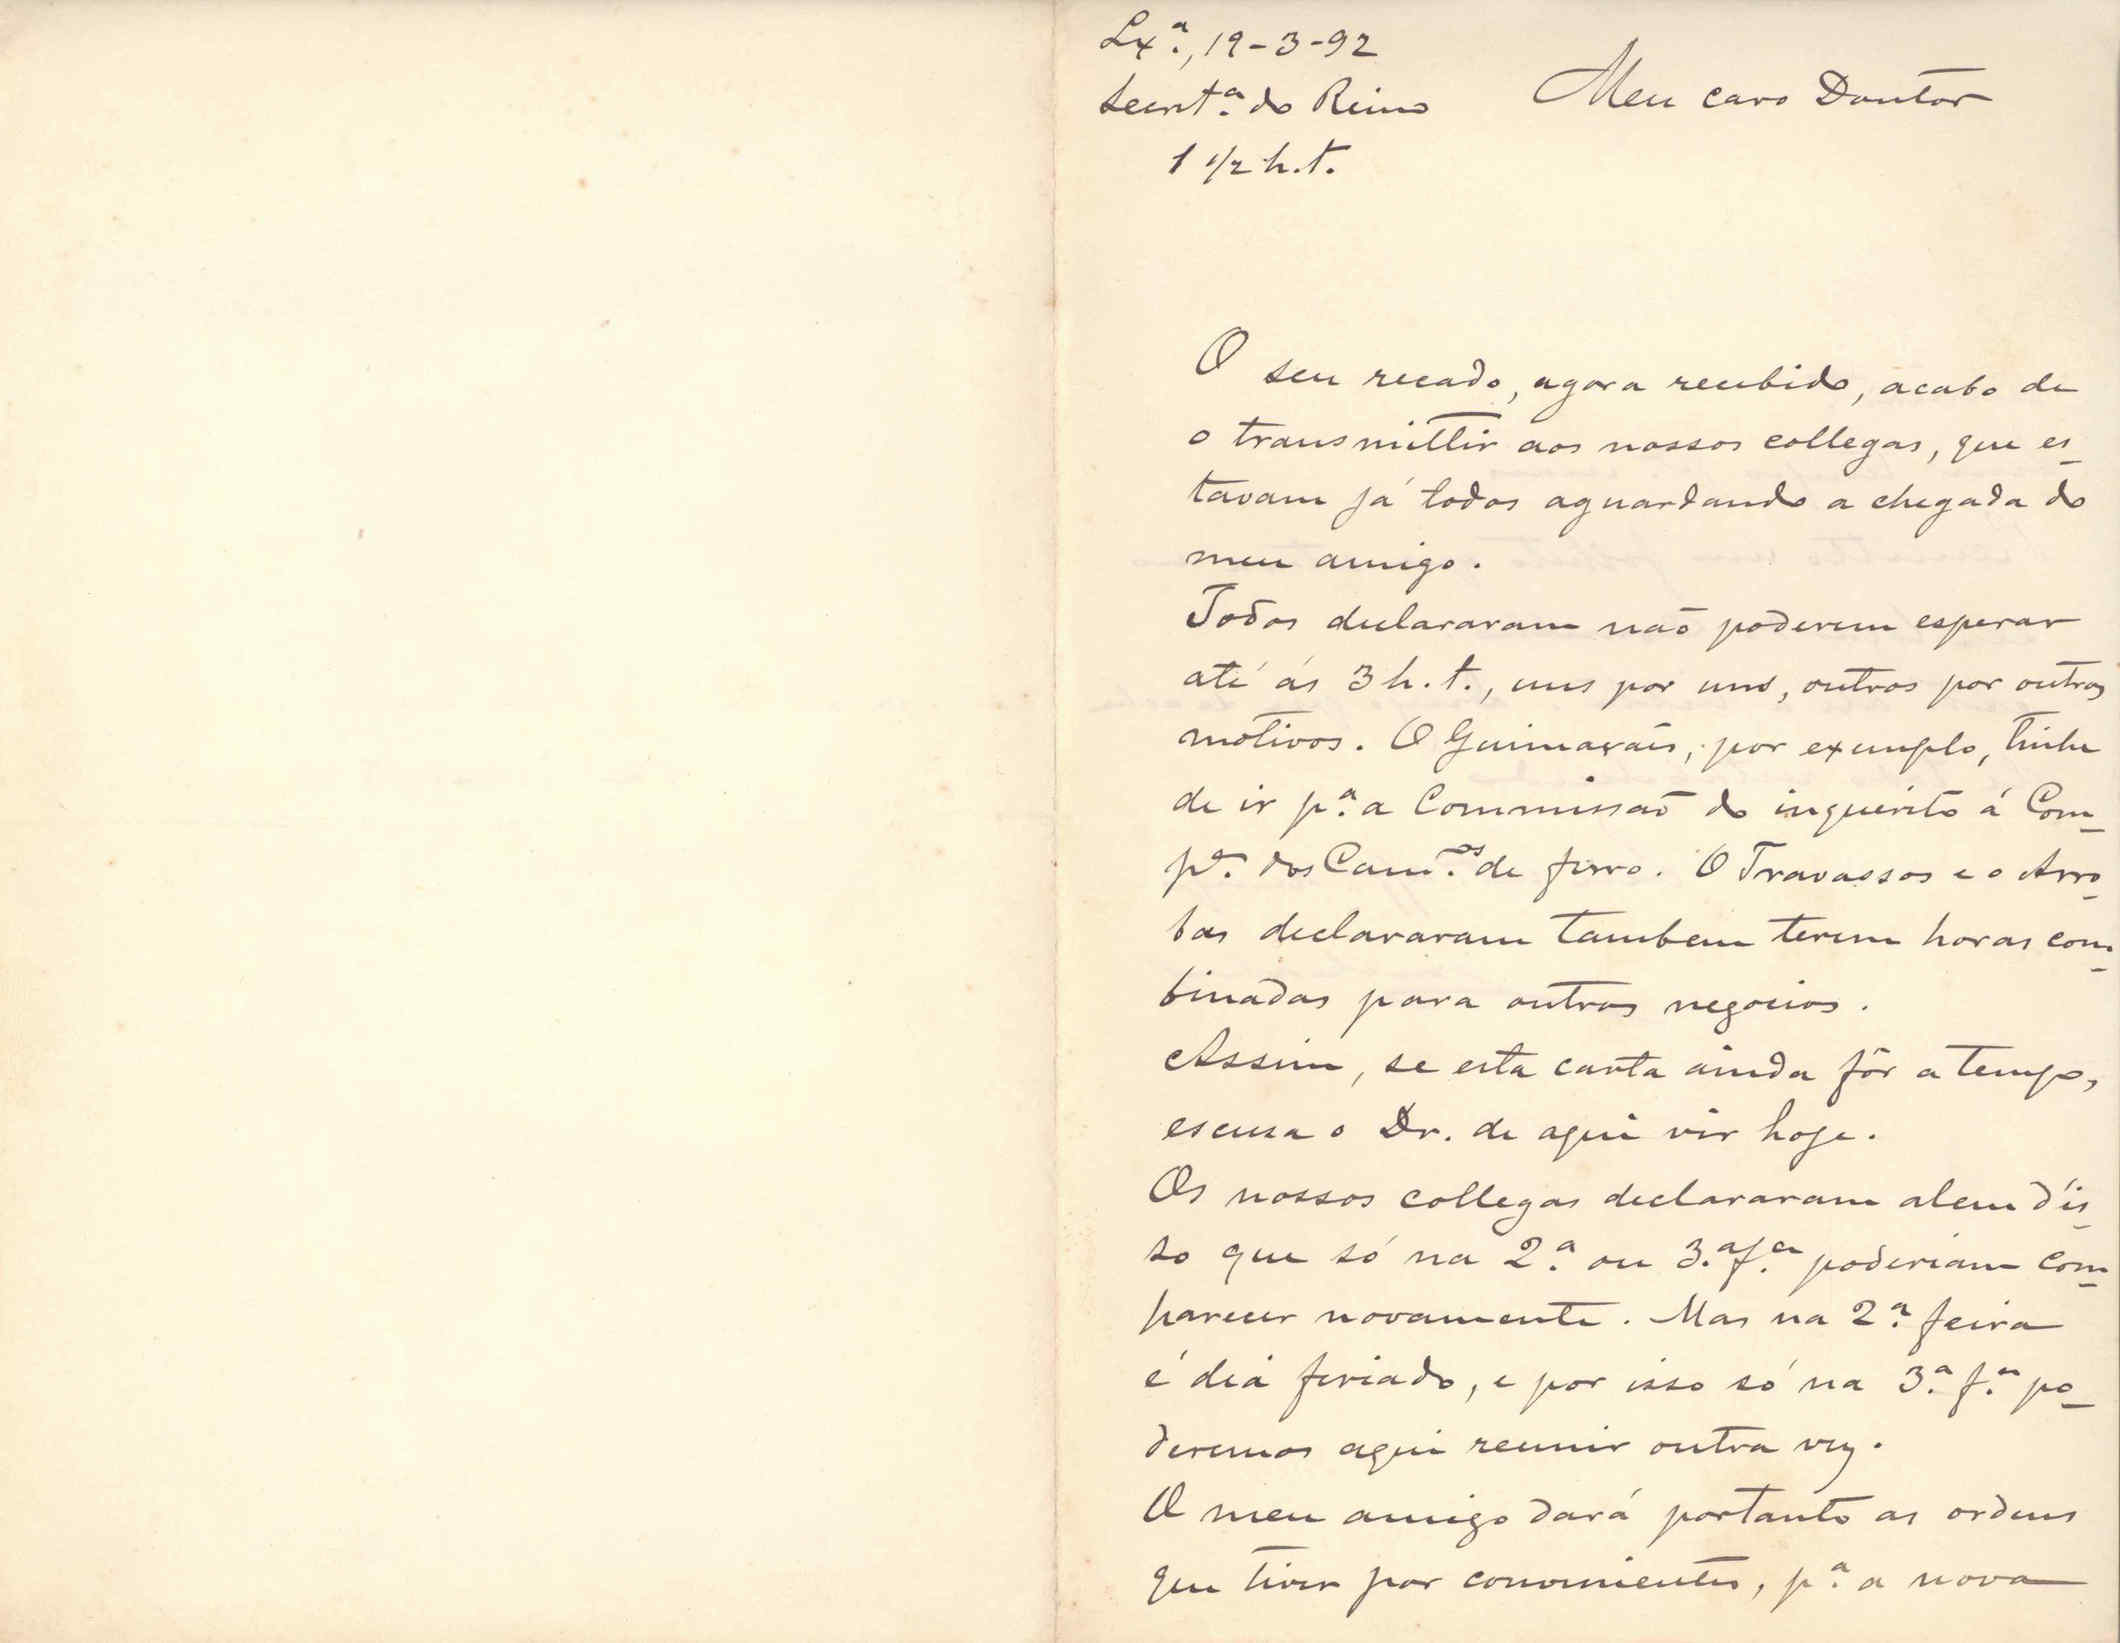 Lx.ª, 19-3-92
Secret.ª do Reino
1 1/2 h. t.
Meu caro Doutor
O seu recado, agora recebido, acabo de
o transmittir aos nossos collegas, que es-
tavam já todos aguardando a chegada do
meu amigo.
Todos declararam não poderem esperar
até ás 3 h. t., uns por uns, outros por outros
motivos. O Guimarães, por exemplo, tinha
de ir p.ª a Commissão do inquerito á Com-
p.ª dos Cam.os de ferro. O Travassos e o Arro-
bas declararam tambem terem horas com-
binadas para outros negocios.
Assim, se esta carta ainda fôr a tempo,
escusa o Dr. de aqui vir hoje.
Os nossos collegas declararam alem d'is-
so que só na 2.ª ou 3.ª f.ª poderiam com-
parecer novamente. Mas na 2.ª feira
é dia feriado, e por isso só na 3.ª f.ª po-
deremos aqui reunir outra vez.
O meu amigo dará portanto as ordens
que tiver por convenientes, p.ª a nova